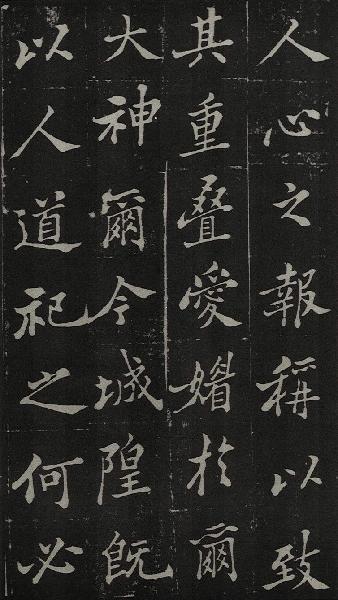 人心之報稱以致
其重疊愛媚於爾
大神爾今城隍既
以人道祀之何必